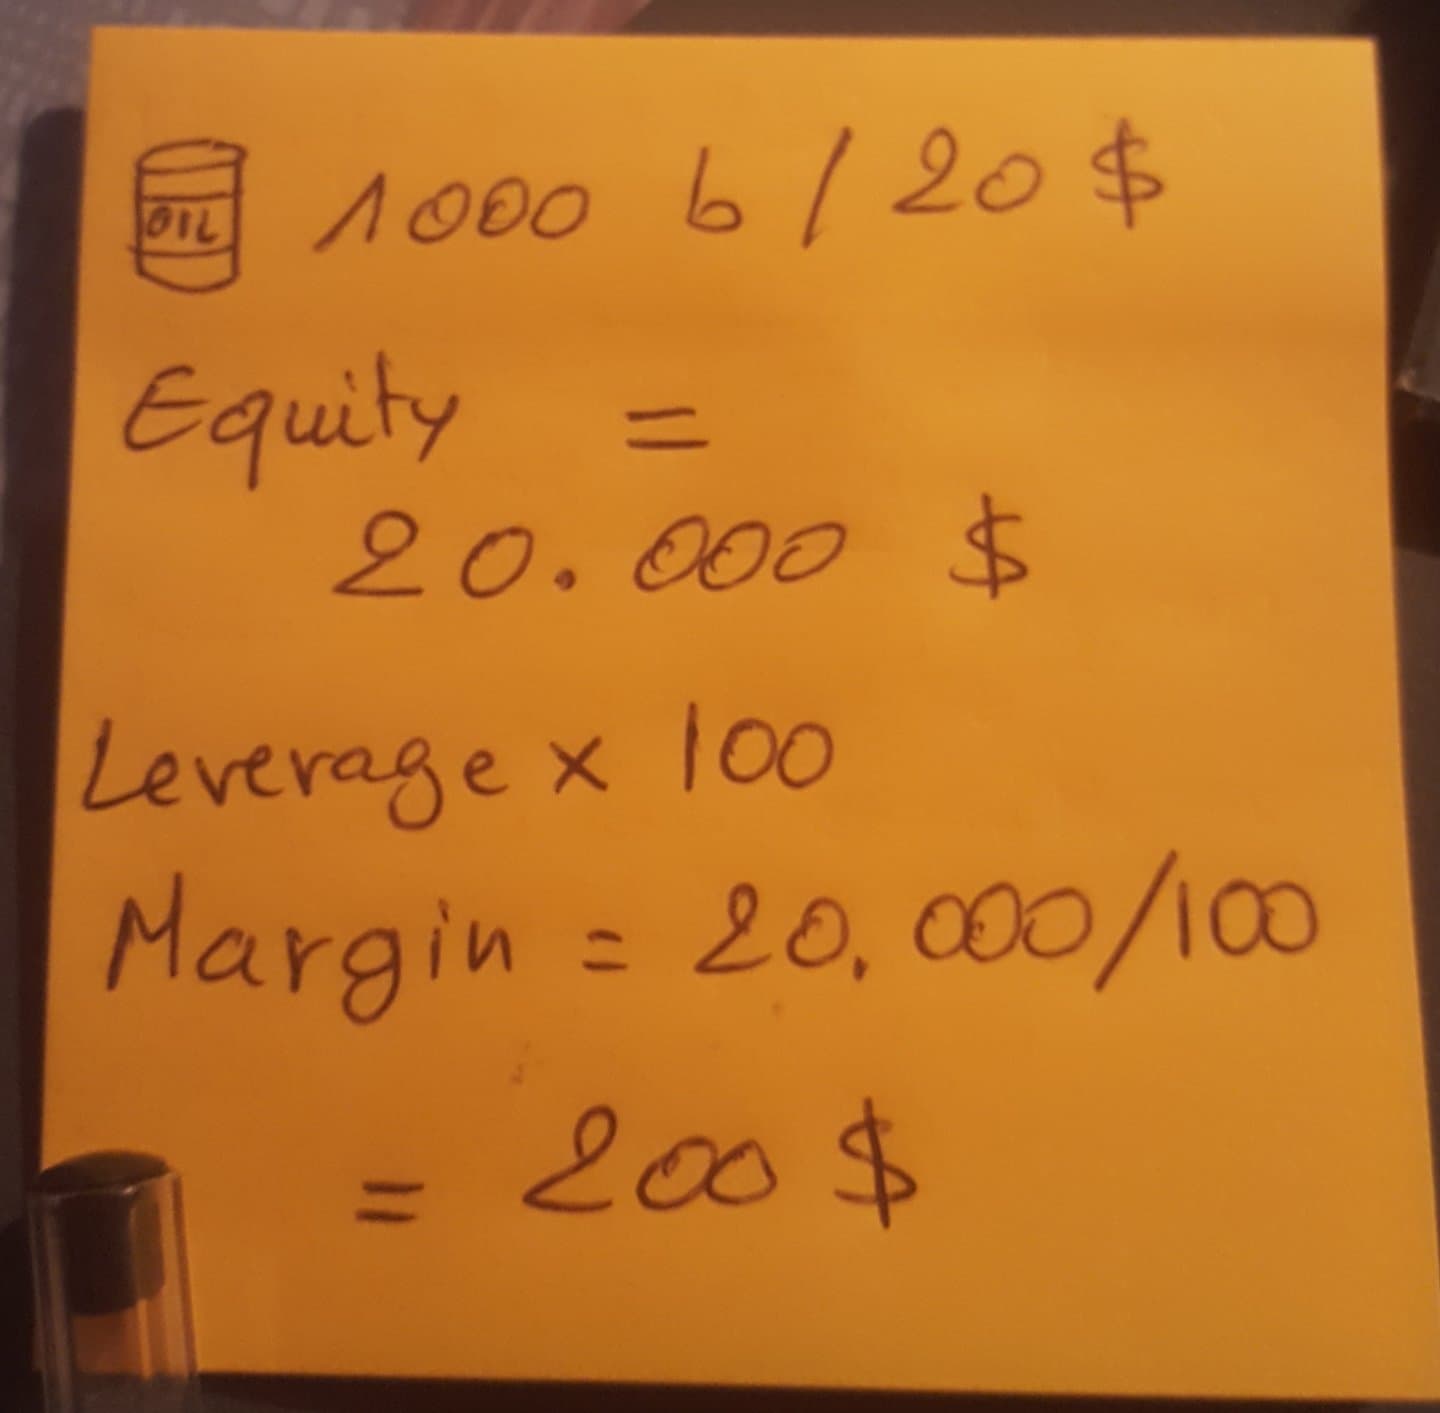 OIL 1000 b / 20 $
Equity =
20.000 $
Leverage x 100
Margin = 20.000/100
= 200 $